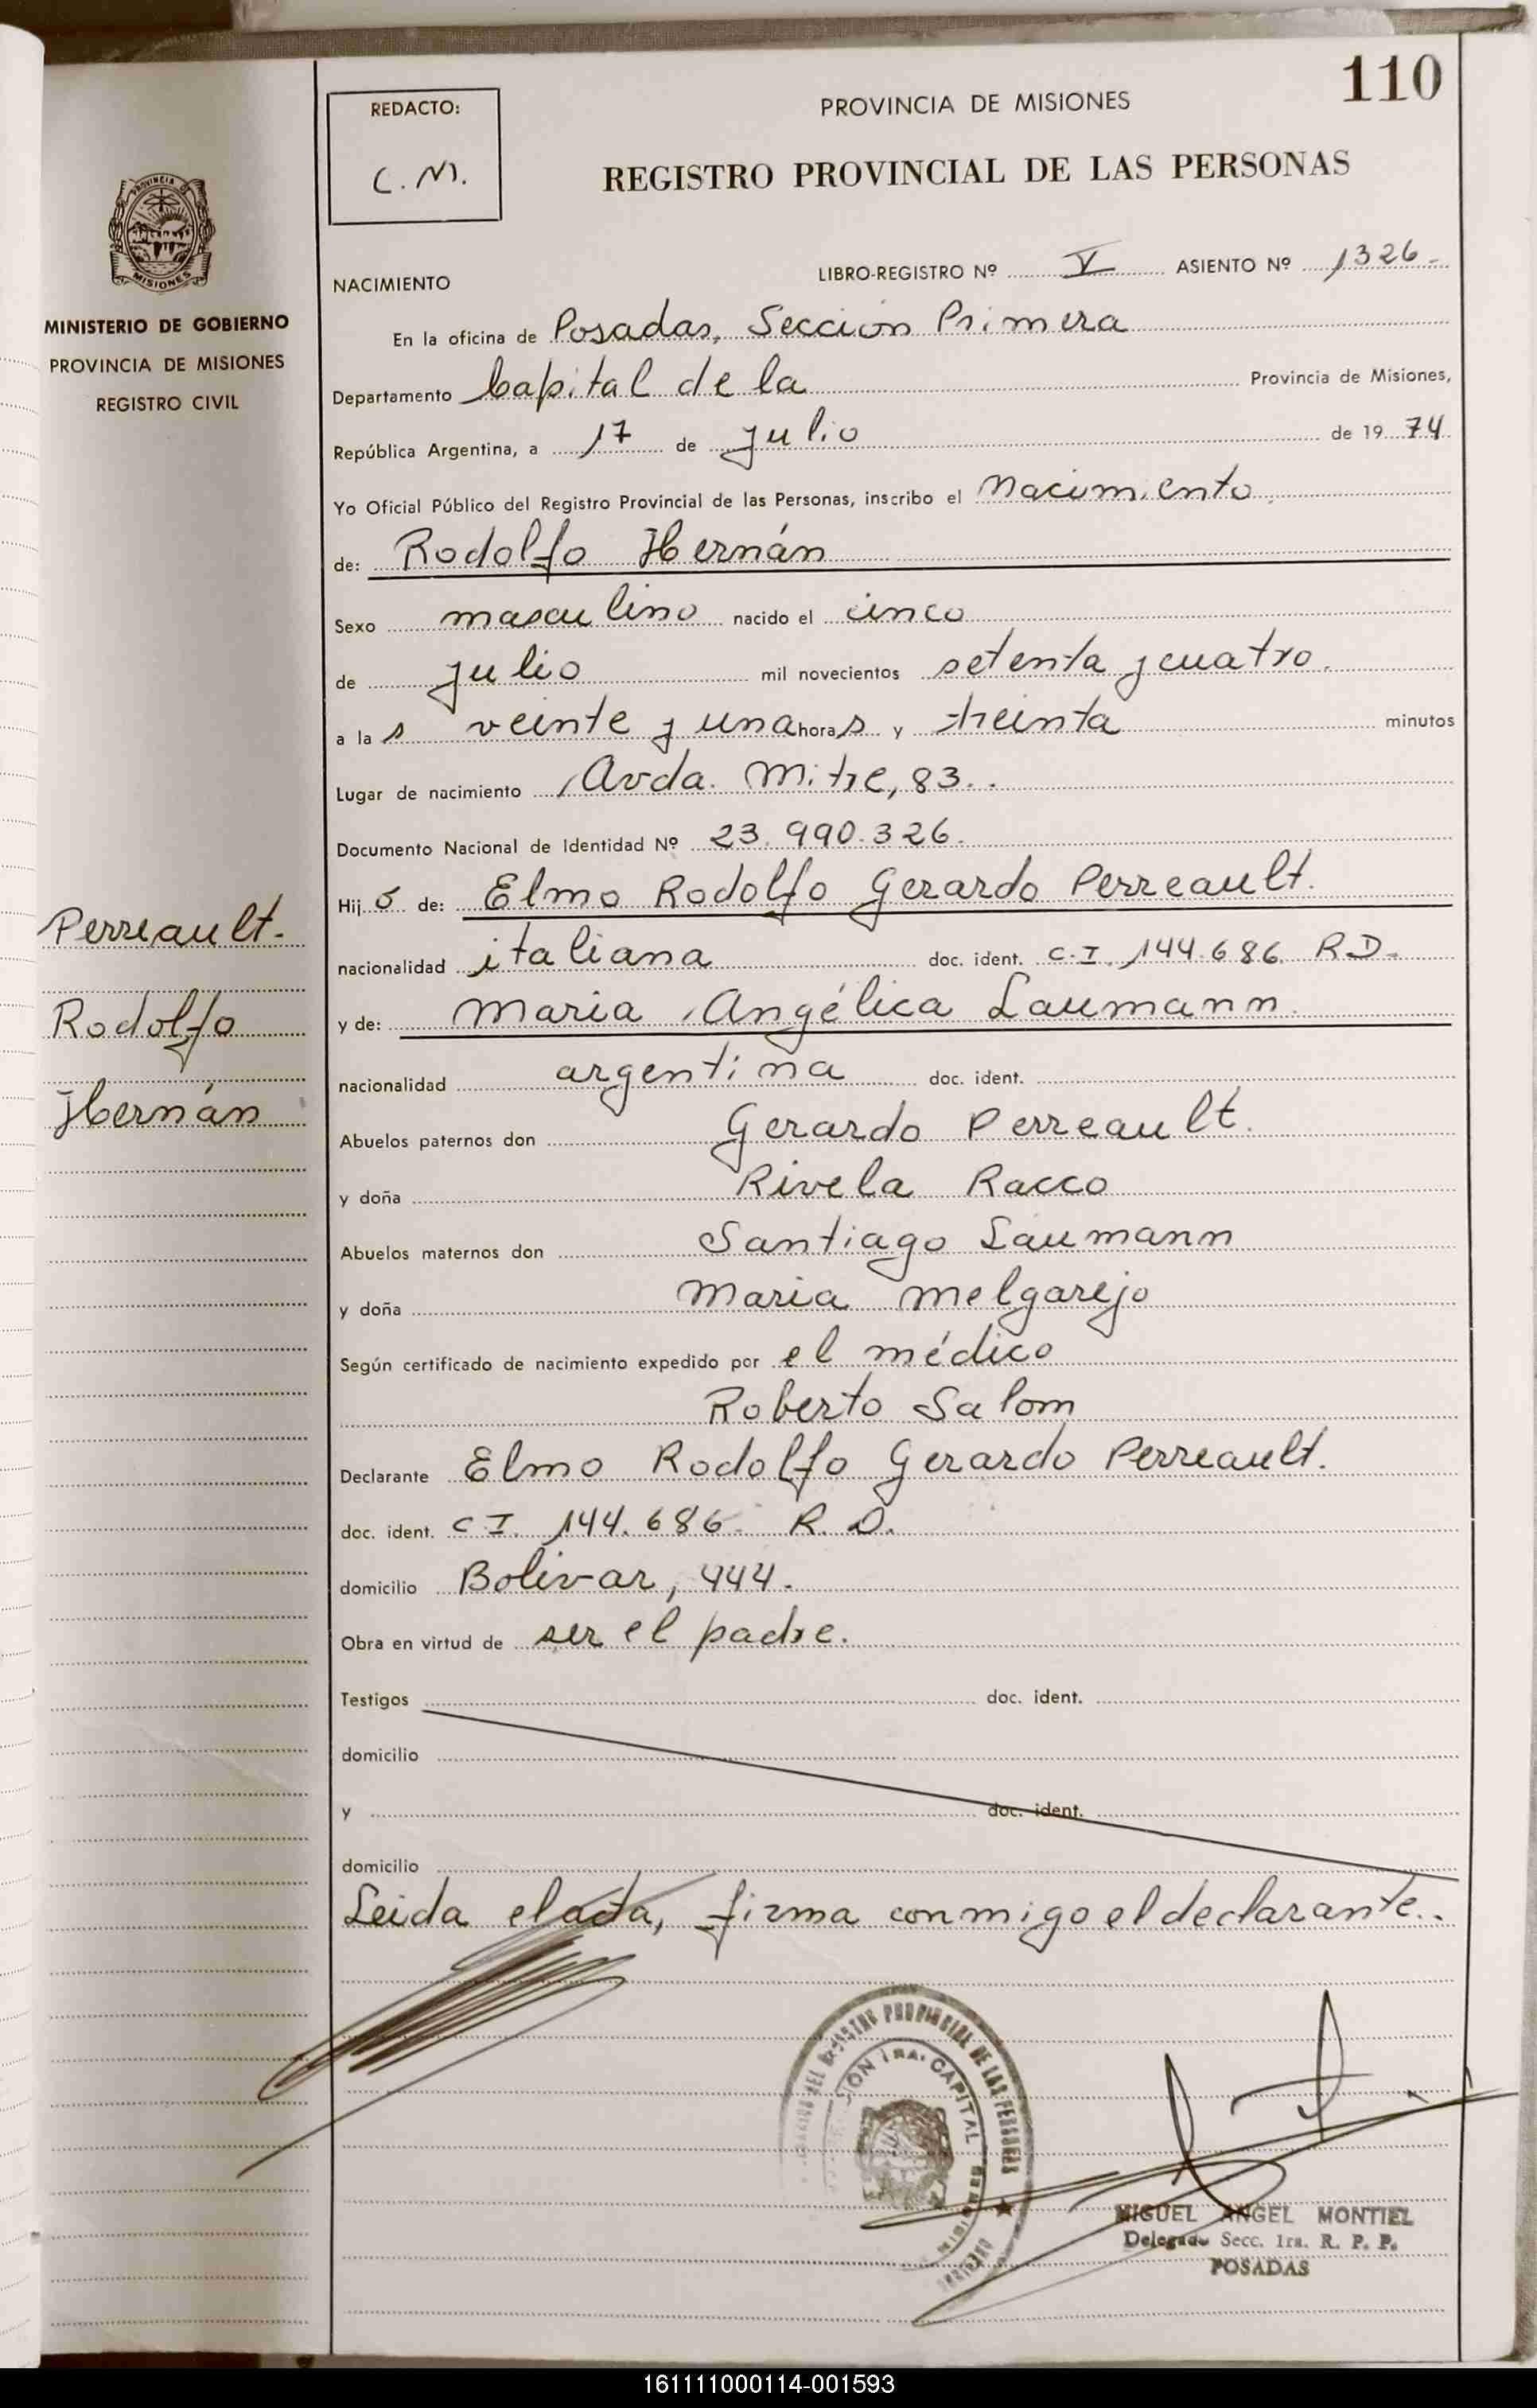 110
REDACTO:
C.M.
PROVINCIA DE MISIONES
REGISTRO PROVINCIAL DE LAS PERSONAS
PROVINCIA DE
MISIONES
MINISTERIO DE GOBIERNO
PROVINCIA DE MISIONES
REGISTRO CIVIL
NACIMIENTO
LIBRO-REGISTRO Nº V ASIENTO Nº 1326-
En la oficina de Posadas, Sección Primera
Departamento Capital de la Provincia de Misiones,
República Argentina, a 17 de Julio de 1974
Yo Oficial Público del Registro Provincial de las Personas, inscribo el Nacimiento
de: Rodolfo Hernán
Sexo masculino nacido el cinco
de Julio mil novecientos setenta y cuatro.
a las veinte y una horas y treinta minutos
Lugar de nacimiento Avda. Mitre, 83..
Documento Nacional de Identidad Nº 23.990.326.
Hijo de: Elmo Rodolfo Gerardo Perreault.
nacionalidad italiana doc. ident. C.I. 144.686. R.D.
y de: Maria Angélica Laumann.
nacionalidad argentina doc. ident.
Abuelos paternos don Gerardo Perreault.
y doña Rivela Racco
Abuelos maternos don Santiago Laumann
y doña Maria Melgarejo
Según certificado de nacimiento expedido por el médico
Roberto Salom
Declarante Elmo Rodolfo Gerardo Perreault.
doc. ident. C I. 144.686. R. D.
domicilio Bolivar, 444.
Obra en virtud de ser el padre.
Testigos doc. ident.
domicilio
y doc. ident.
domicilio
Leida el acta, firma conmigo el declarante..
Perreault.
Rodolfo
Hernán
REGISTRO PROVINCIAL DE LAS PERSONAS
1RA. CAPITAL
MIGUEL ANGEL MONTIEL
Delegado Secc. 1ra. R. P. P.
POSADAS
161111000114-001593